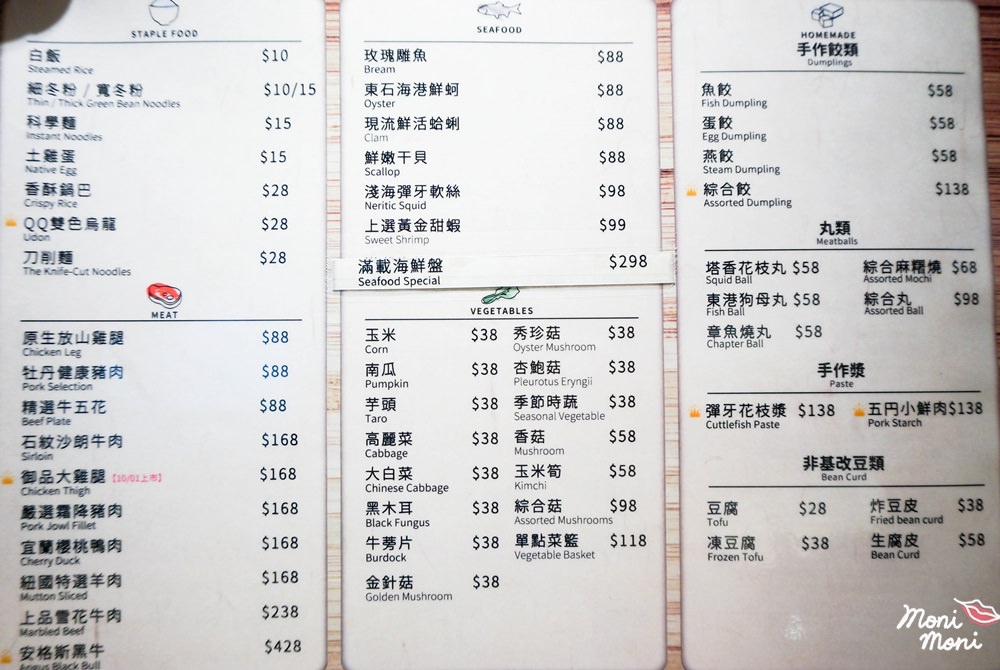 STAPLE FOOD
白飯 $10
Steamed Rice
細冬粉 / 寬冬粉 $10/15
Thin / Thick Green Bean Noodles
科學麵 $15
Instant Noodles
土雞蛋 $15
Native Egg
香酥鍋巴 $28
Crispy Rice
QQ雙色烏龍 $28
Udon
刀削麵 $28
The Knife-Cut Noodles
MEAT
原生放山雞腿 $88
Chicken Leg
牡丹健康豬肉 $88
Pork Selection
精選牛五花 $88
Beef Plate
石紋沙朗牛肉 $168
Sirloin
御品大雞腿 【10/01上市】 $168
Chicken Thigh
嚴選霜降豬肉 $168
Pork Jowl Fillet
宜蘭櫻桃鴨肉 $168
Cherry Duck
紐國特選羊肉 $168
Mutton Sliced
上品雪花牛肉 $238
Marbled Beef
安格斯黑牛 $428
Angus Black Bull
SEAFOOD
玫瑰雕魚 $88
Bream
東石海港鮮蚵 $88
Oyster
現流鮮活蛤蜊 $88
Clam
鮮嫩干貝 $88
Scallop
淺海彈牙軟絲 $98
Neritic Squid
上選黃金甜蝦 $99
Sweet Shrimp
滿載海鮮盤 $298
Seafood Special
VEGETABLES
玉米 $38 秀珍菇 $38
Corn Oyster Mushroom
南瓜 $38 杏鮑菇 $38
Pumpkin Pleurotus Eryngii
芋頭 $38 季節時蔬 $38
Taro Seasonal Vegetable
高麗菜 $38 香菇 $58
Cabbage Mushroom
大白菜 $38 玉米筍 $58
Chinese Cabbage Kimchi
黑木耳 $38 綜合菇 $98
Black Fungus Assorted Mushrooms
牛蒡片 $38 單點菜籃 $118
Burdock Vegetable Basket
金針菇 $38
Golden Mushroom
HOMEMADE
手作餃類
Dumplings
魚餃 $58
Fish Dumpling
蛋餃 $58
Egg Dumpling
燕餃 $58
Steam Dumpling
綜合餃 $138
Assorted Dumpling
丸類
Meatballs
塔香花枝丸 $58 綜合麻糬燒 $68
Squid Ball Assorted Mochi
東港狗母丸 $58 綜合丸 $98
Fish Ball Assorted Ball
章魚燒丸 $58
Chapter Ball
手作漿
Paste
彈牙花枝漿 $138 五円小鮮肉 $138
Cuttlefish Paste Pork Starch
非基改豆類
Bean Curd
豆腐 $28 炸豆皮 $38
Tofu Fried bean curd
凍豆腐 $38 生腐皮 $58
Frozen Tofu Bean Curd
Moni
Moni